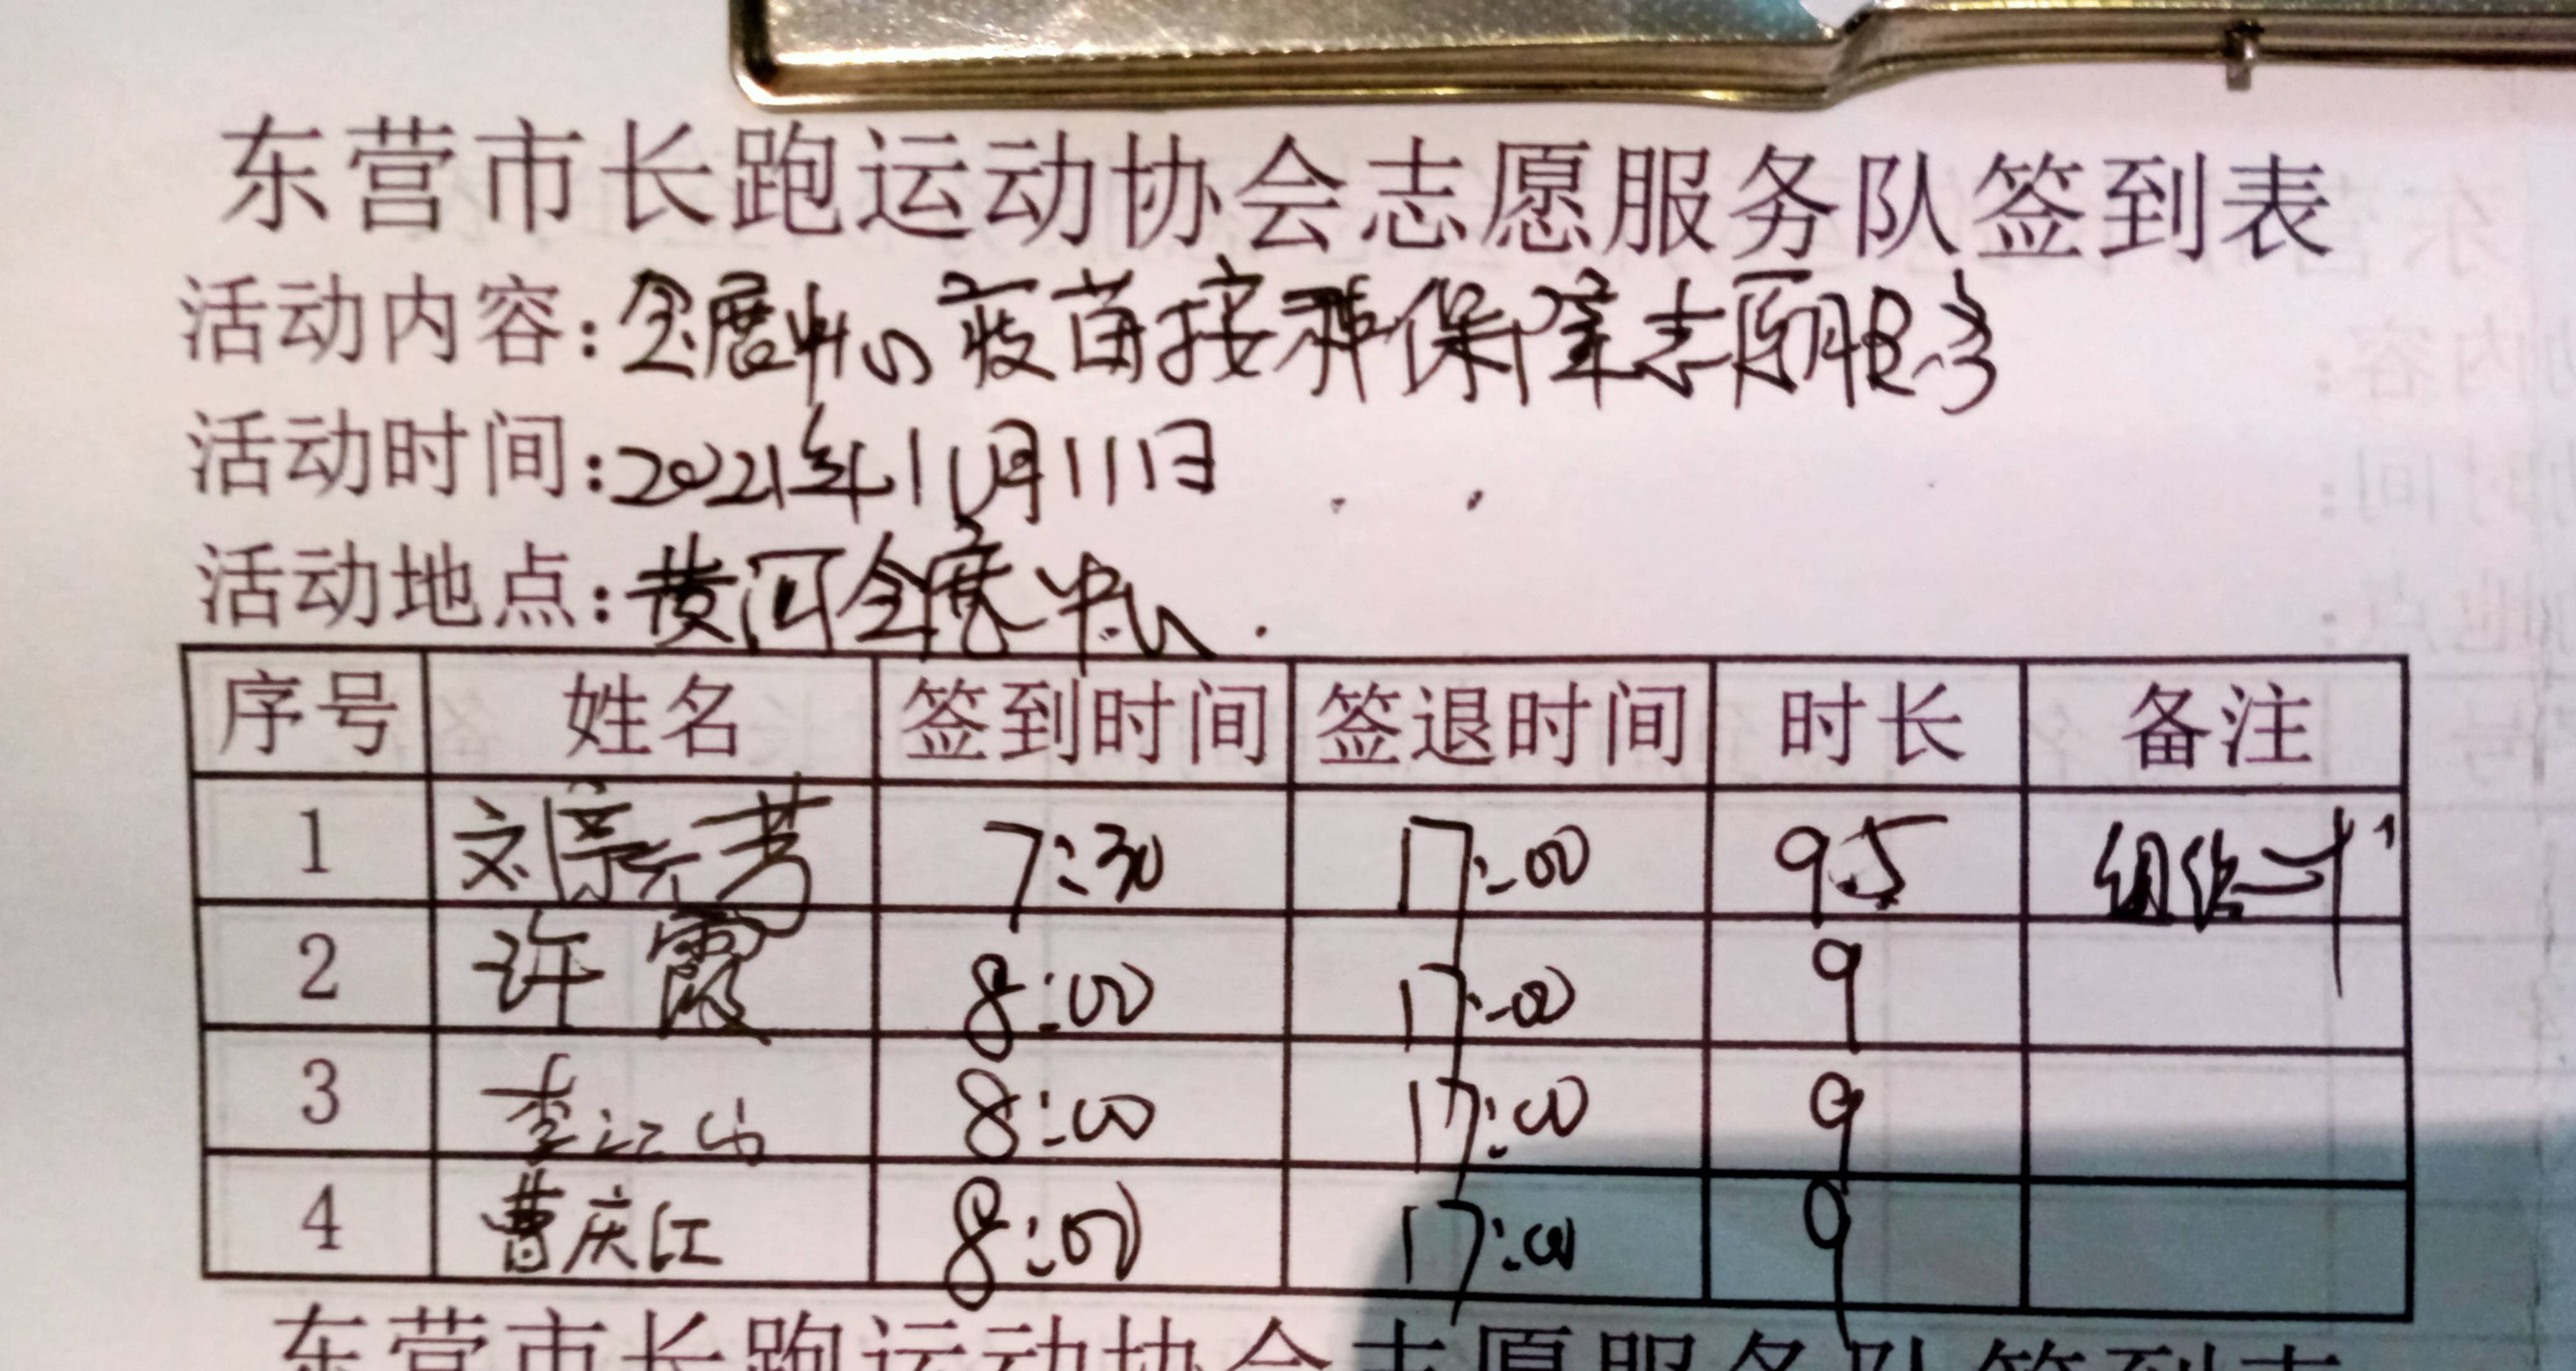 东营市长跑运动协会志愿服务队签到表
活动内容:会展中心疫苗接种保障志愿服务
活动时间:2021年11月11日
活动地点:黄河会展中心.
序号 姓名 签到时间 签退时间 时长 备注
1 刘 芳 7:30 17:00 9.5
2 许霞 8:00 17:00 9
3 李江山 8:00 17:00 9
4 曹庆江 8:00 17:00 9
东营市长跑运动协会志愿服务队签到表